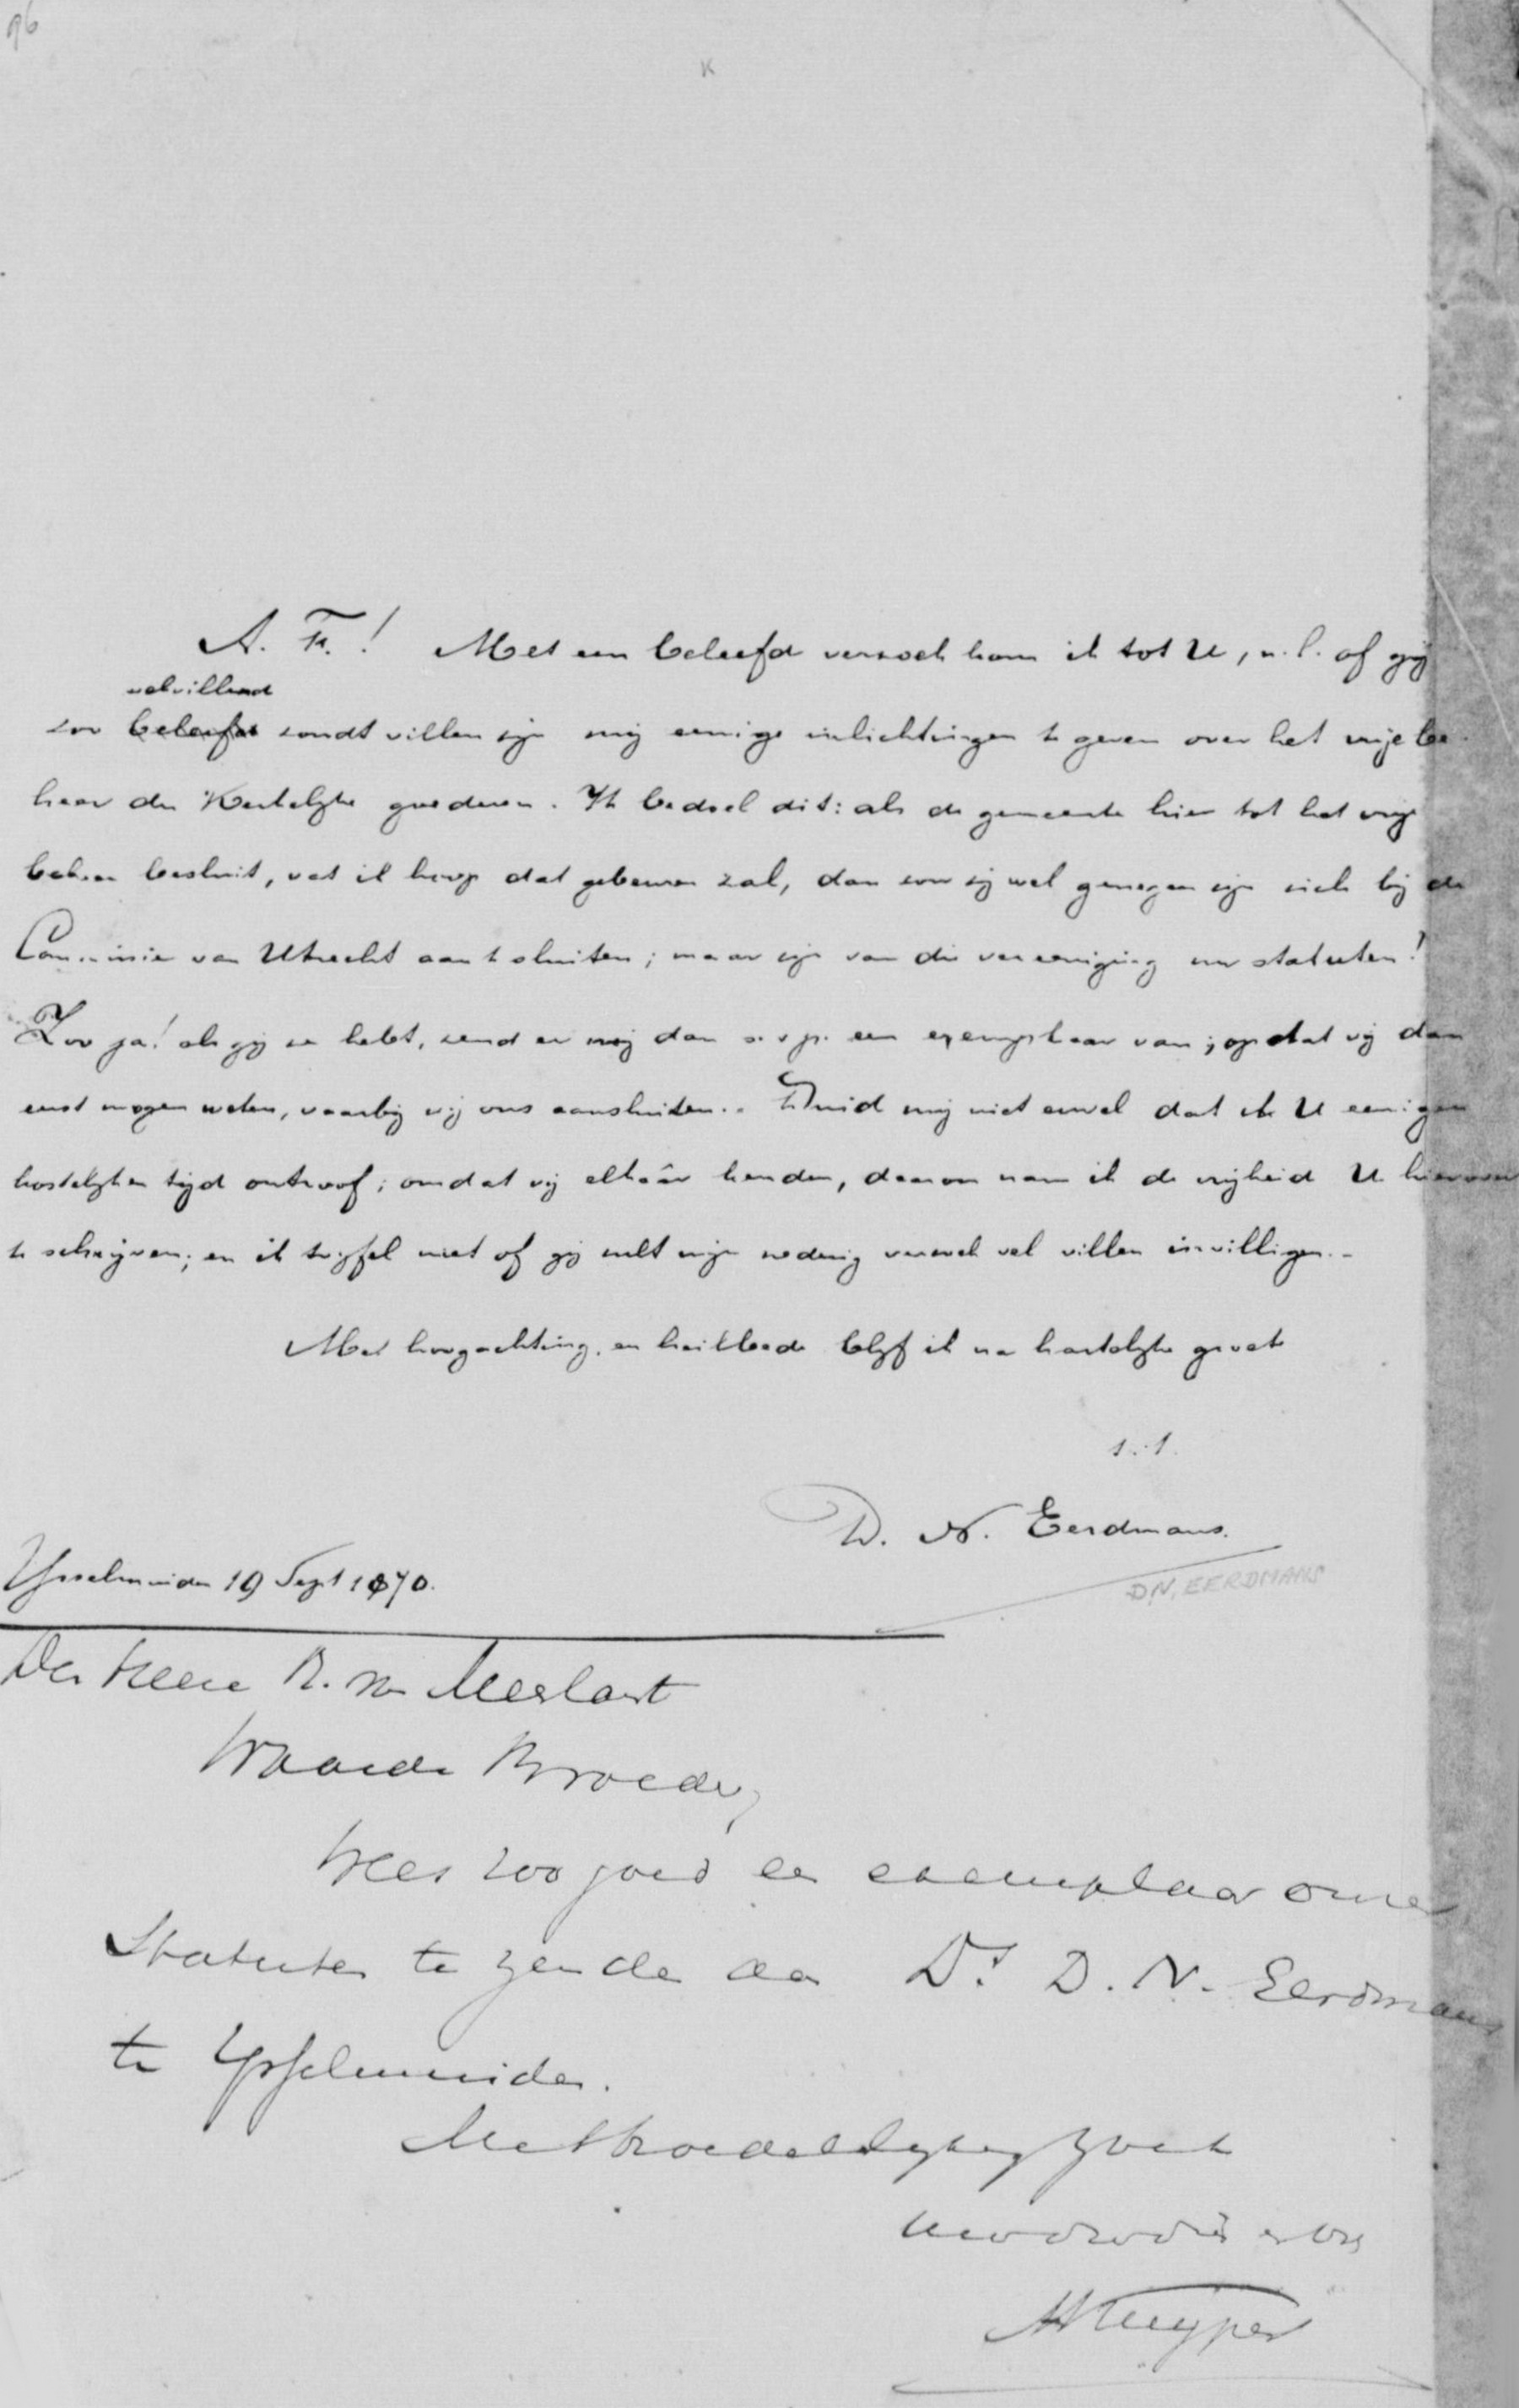 96
K
A. F.! Met een beleefd verzoek kom ik tot U, n.l. of gij
welwillend
zoo beleefd zoudt willen zijn mij eenige inlichtingen te geven over het vrije be-
heer der Kerkelijke goederen. Ik bedoel dit: als de gemeente hier tot het vrije
beheer besluit, wat ik hoop dat gebeuren zal, dan zou zij wel genegen zijn zich bij de
Commissie van Utrecht aan te sluiten; maar zijn van die vereeniging nu statuten?
Zoo ja! als gij ze hebt, zend er mij dan s.v.p. een exemplaar van; opdat wij dan
eerst mogen weten, waarbij wij ons aansluiten.. Duid mij niet euvel dat ik U eenigen
kostelijken tijd ontroof; omdat wij elkaâr kenden, daarom nam ik de vrijheid U hierover
te schrijven; en ik twijfel niet of gij zult mijn nederig verzoek wel willen inwilligen.-
Met hoogachting, en heilbede blijf ik na hartelijke groete
t.t.
D. N. Eerdmans.
D.N. EERDMANS
IJsselmuiden 19 Sept 1870.
Den Heere B. van Meerlant
Waarde Broeder,
Wees zoo goed een exemplaar onzer
Statuten te zenden aan Ds D. N. Eerdmans
te Ysselmuiden.
Met broederlijken groet
AKuyper